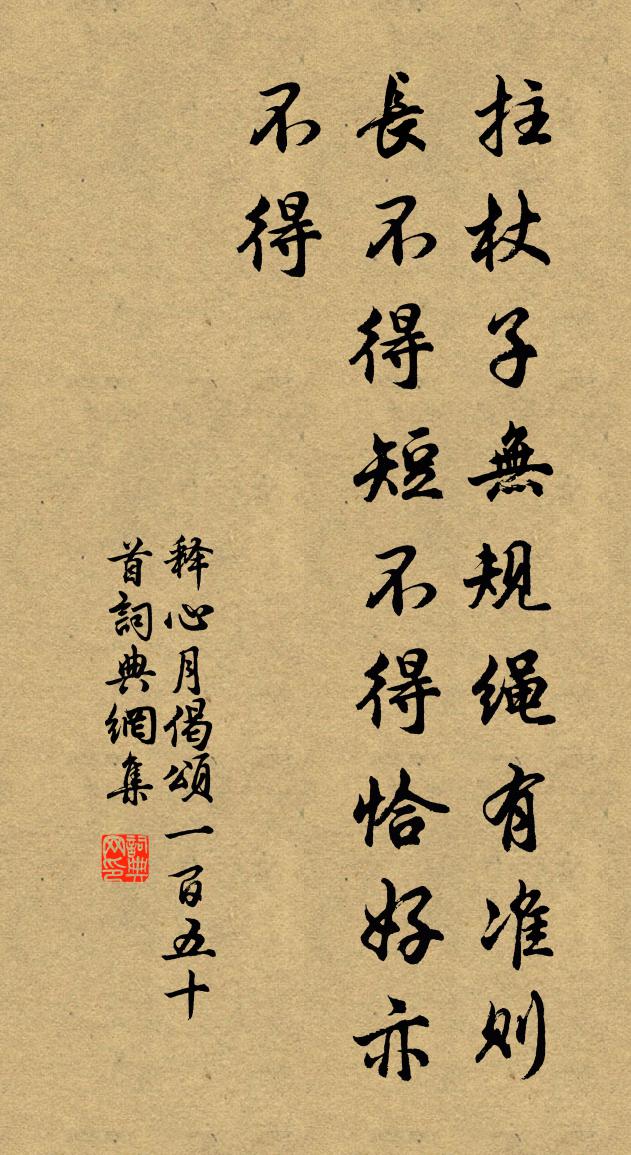 拄杖子無规绳有准则
長不得短不得恰好亦
不得
释心月偈頌一百五十
首詞典網集
詞典网印